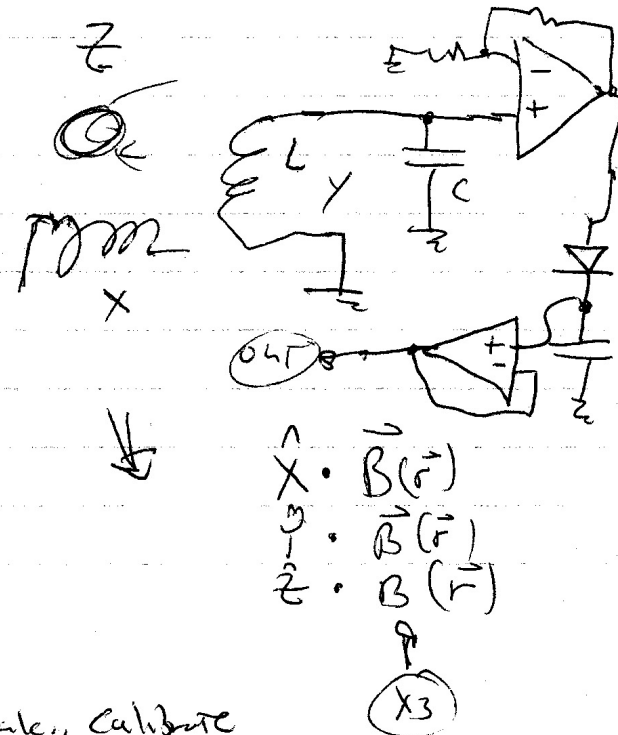 Z
L
Y
C
X
OUT
X̂ · B⃗(r⃗)
ŷ · B⃗(r⃗)
ẑ · B(r⃗)
X3
Calibrate